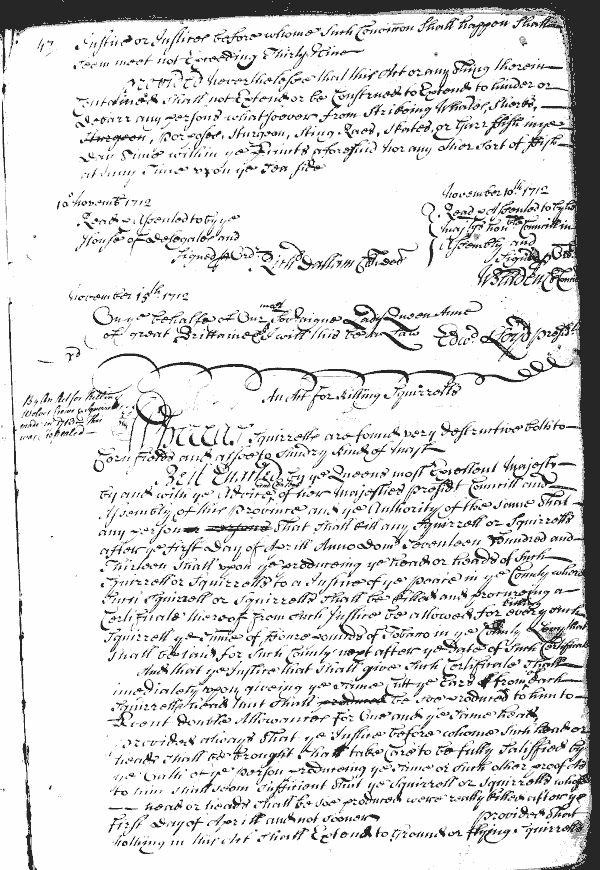 47
Justice or Justices before whome Such Conviccon Shall happen Shall
Seem meet not Exceeding Thirty Nine
Provided Neverthelesse that this Act or any Thing therein
Contained Shall not Extend or be Construed to Extend to hinder or
debarr any persons whatsoever from Strikeing
Sturgeon, Porpose, Sturgeon, Sting Raes, Skates, or Garr ffish in ye
Day time within ye Points aforesaid nor any other Sort of ffish
at any time upon ye Sea Side
10 November 1712
Read & Assented to by ye
House of delegates and
Signed p Ord
Richd Dallam Cl
November 10th 1712
Read & Assented to by
majtys honble Councill in
Assembly and
Signed p
W Bladen Cl
November 15th 1712
On ye behalfe of Our most Soveraigne Lady Queen Anne
of great Brittaine &c I will this be a Law
Edwd Lloyd presidt
An Act for Killing Squirrells
By An Act for Killing
Wolves Crows & Squirrells
made in this
was repealed
Whereas Squirrells are found very destructive both to
Corn fields and alsoe to Sundry kinds of mast
Bee it Enacted by ye Queens most Excellent Majesty
by and with ye Advice of her Majesties presidt Councill and
Assembly of this Province and ye Authority of the Same That
any person that Shall kill any Squirrell or Squirrells
after ye first Day of Aprill Anno dom Seventeen hundred and
Thirteen Shall upon ye produceing ye head or heads of Such
Squirrell or Squirrells to a Justice of ye peace in ye County where
Such Squirrell or Squirrells Shall be killed and procureing a
Certificate thereof from Such Justice be allowed for every such
Squirrell ye Sume of pounds of Tobacco in ye County Levy that
Shall be laid for Such County next after ye date of Such Certificate
And that ye Justice that Shall give Such Certificate Shall
imediately upon giveing ye Same cutt ye Ears of from each
Squirrells head that Shall be soe produced to him to
prevent double Allowances for One and ye Same head
Provided always that ye Justice before whome Such head or
heads Shall be brought Shall take Care to be fully Satisffied by
ye Oath of ye person produceing ye Same or Such other proof As
to him Shall seem Sufficient that ye Squirrell or Squirrells whose
head or heads Shall be soe produced were really killed after ye
first day of Aprill and not sooner
Provided that
nothing in this Act Shall Extend to Ground or fflying Squirrells